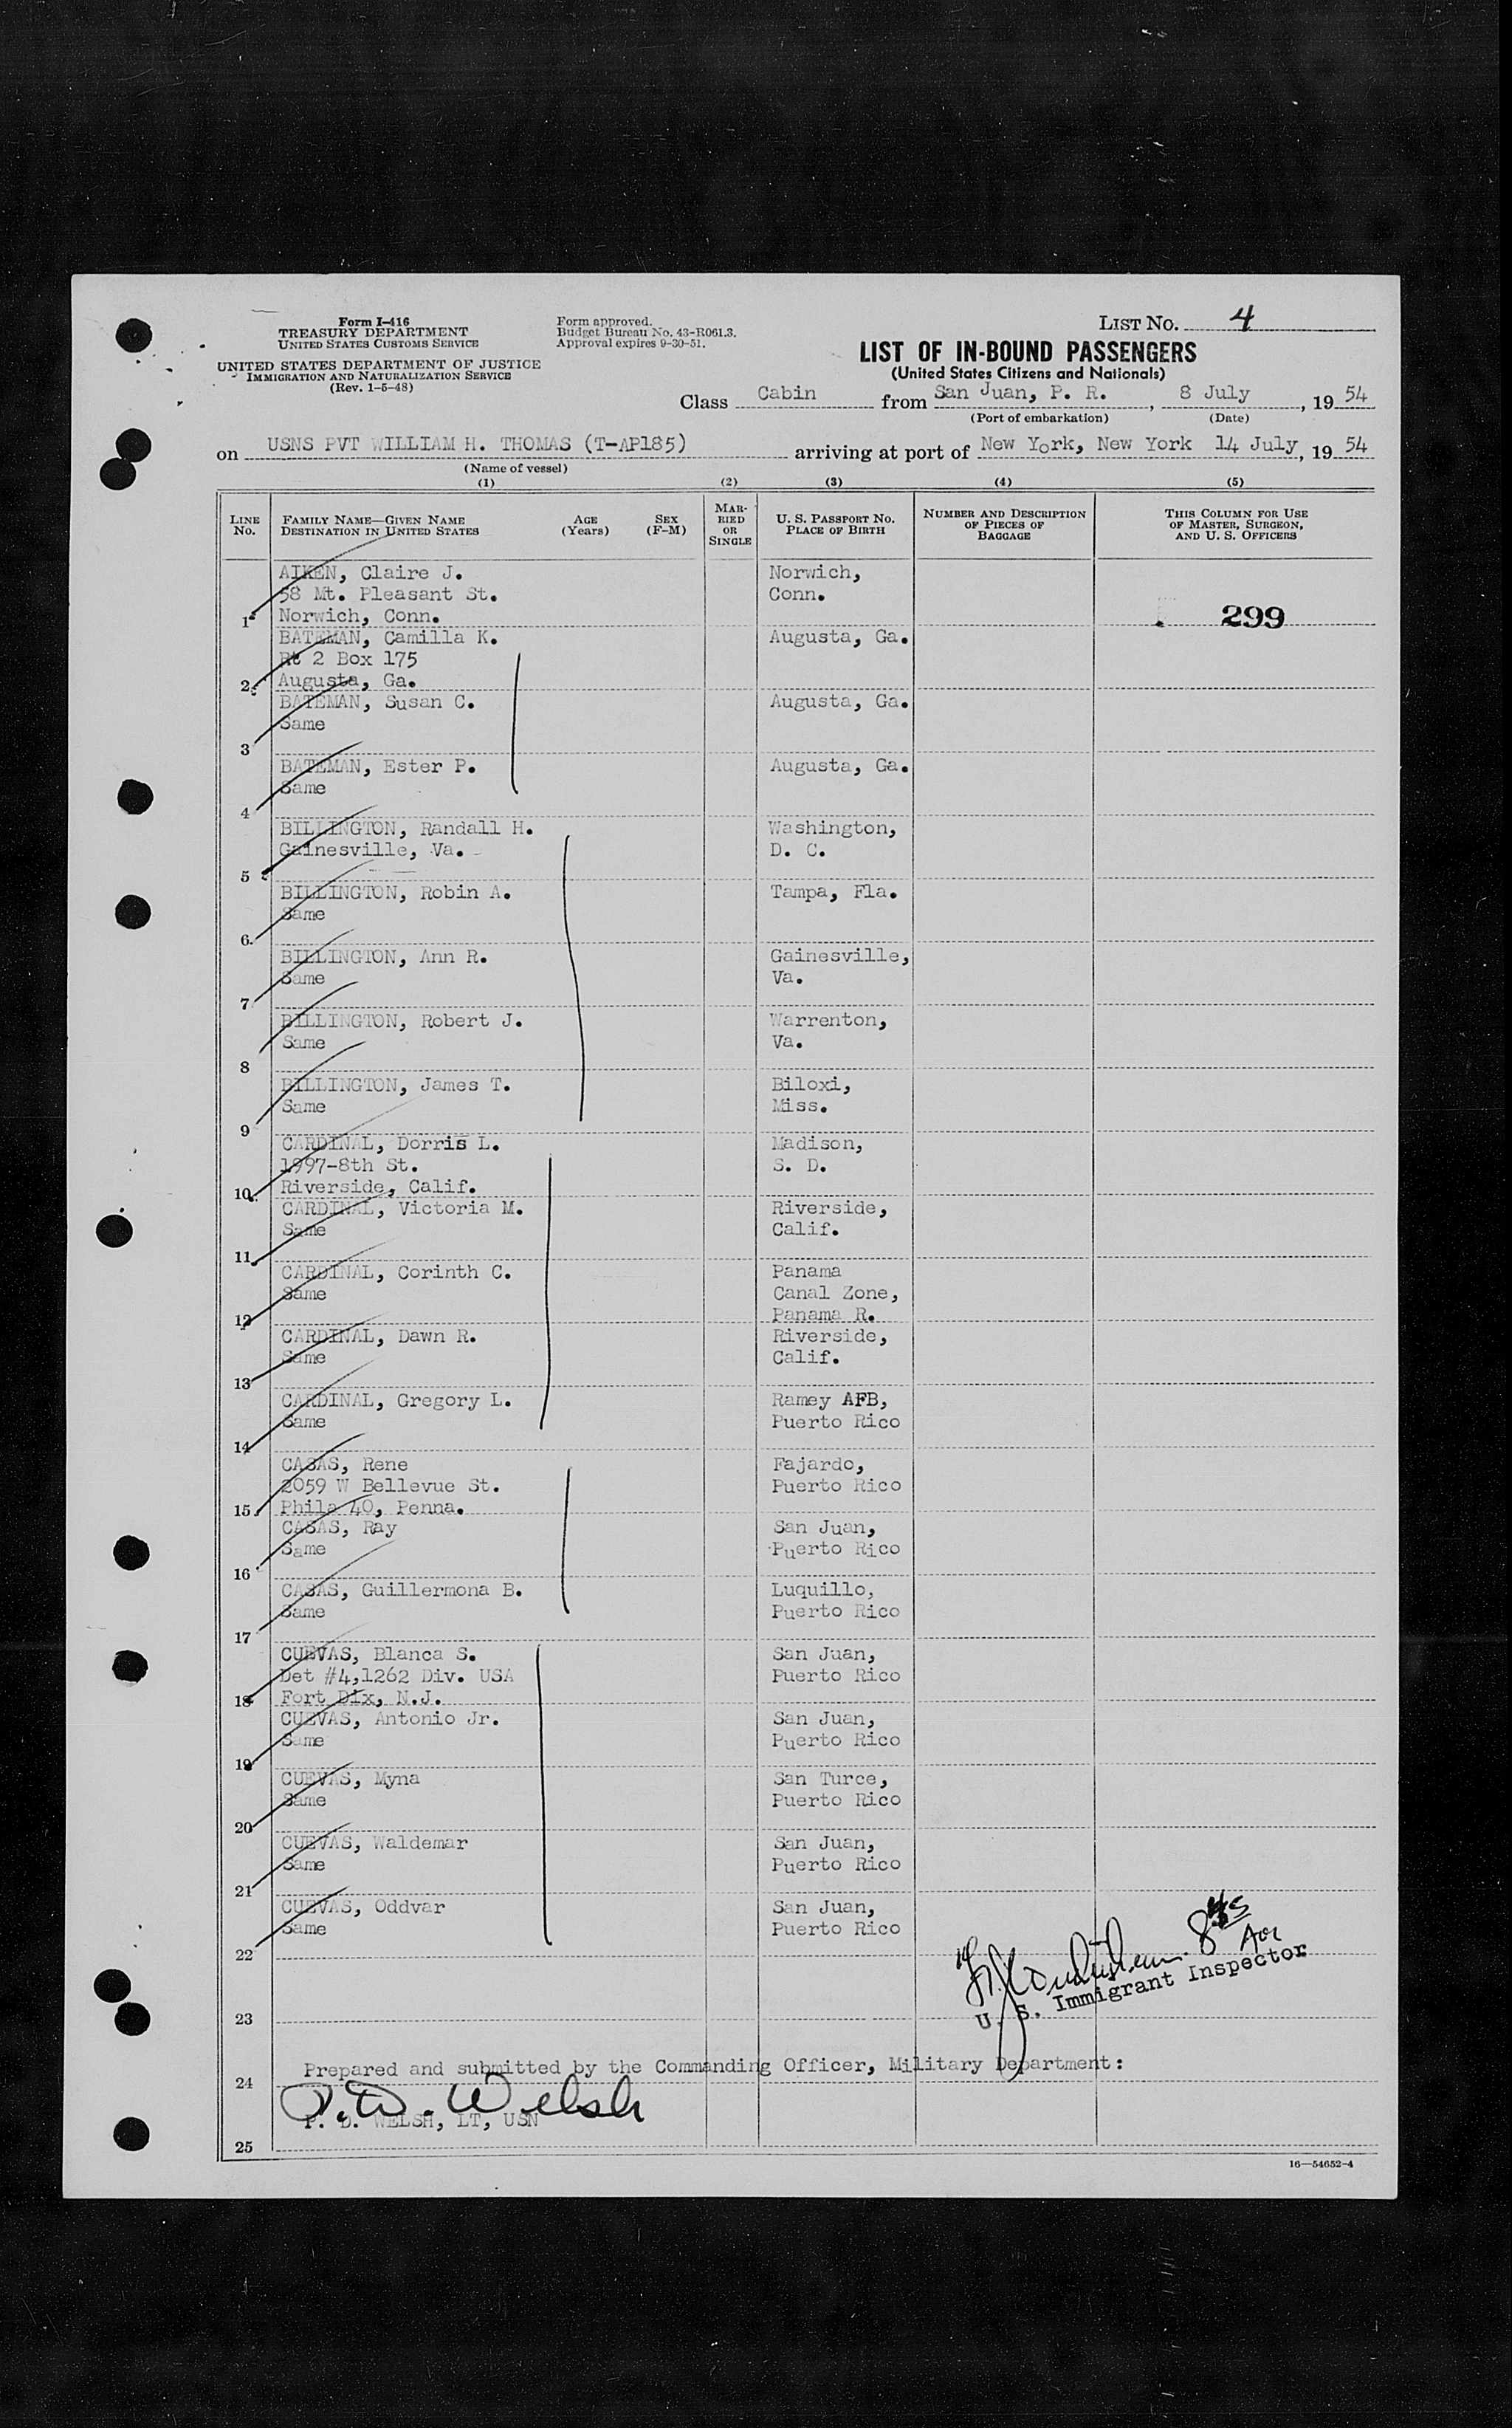 Form I-416
TREASURY DEPARTMENT
UNITED STATES CUSTOMS SERVICE
UNITED STATES DEPARTMENT OF JUSTICE
IMMIGRATION AND NATURALIZATION SERVICE
(Rev. 1-5-48)
Form approved.
Budget Bureau No. 43-R061.3.
Approval expires 9-30-51.
LIST NO. 4
LIST OF IN-BOUND PASSENGERS
(United States Citizens and Nationals)
Class Cabin from San Juan, P. R., 8 July, 19 54
(Port of embarkation) (Date)
on USNS PVT WILLIAM H. THOMAS (T-AP185) arriving at port of New York, New York 14 July, 19 54
(Name of vessel)
(1) (2) (3) (4) (5)
LINE NO. FAMILY NAME—GIVEN NAME DESTINATION IN UNITED STATES AGE (Years) SEX (F-M) MARRIED OR SINGLE U. S. PASSPORT NO. PLACE OF BIRTH NUMBER AND DESCRIPTION OF PIECES OF BAGGAGE THIS COLUMN FOR USE OF MASTER, SURGEON, AND U. S. OFFICERS
AIKEN, Claire J. Norwich,
58 Mt. Pleasant St. Conn.
1 Norwich, Conn. 299
BATEMAN, Camilla K. Augusta, Ga.
Rt 2 Box 175
2 Augusta, Ga.
BATEMAN, Susan C. Augusta, Ga.
Same
3
BATEMAN, Ester P. Augusta, Ga.
Same
4
BILLINGTON, Randall H. Washington,
Gainesville, Va. D. C.
5
BILLINGTON, Robin A. Tampa, Fla.
Same
6
BILLINGTON, Ann R. Gainesville,
Same Va.
7
BILLINGTON, Robert J. Warrenton,
Same Va.
8
BILLINGTON, James T. Biloxi,
Same Miss.
9
CARDINAL, Dorris L. Madison,
1997-8th St. S. D.
10 Riverside, Calif.
CARDINAL, Victoria M. Riverside,
Same Calif.
11
CARDINAL, Corinth C. Panama
Same Canal Zone,
12 Panama R.
CARDINAL, Dawn R. Riverside,
Same Calif.
13
CARDINAL, Gregory L. Ramey AFB,
Same Puerto Rico
14
CASAS, Rene Fajardo,
2059 W Bellevue St. Puerto Rico
15 Phila 40, Penna.
CASAS, Ray San Juan,
Same Puerto Rico
16
CASAS, Guillermona B. Luquillo,
Same Puerto Rico
17
CUEVAS, Blanca S. San Juan,
Det #4,1262 Div. USA Puerto Rico
18 Fort Dix, N.J.
CUEVAS, Antonio Jr. San Juan,
Same Puerto Rico
19
CUEVAS, Myna San Turce,
Same Puerto Rico
20
CUEVAS, Waldemar San Juan,
Same Puerto Rico
21
CUEVAS, Oddvar San Juan,
Same Puerto Rico
22
U. S. Immigrant Inspector
23
Prepared and submitted by the Commanding Officer, Military Department:
24
P. D. Welsh
P. D. WELSH, LT, USN
25
16—54652-4